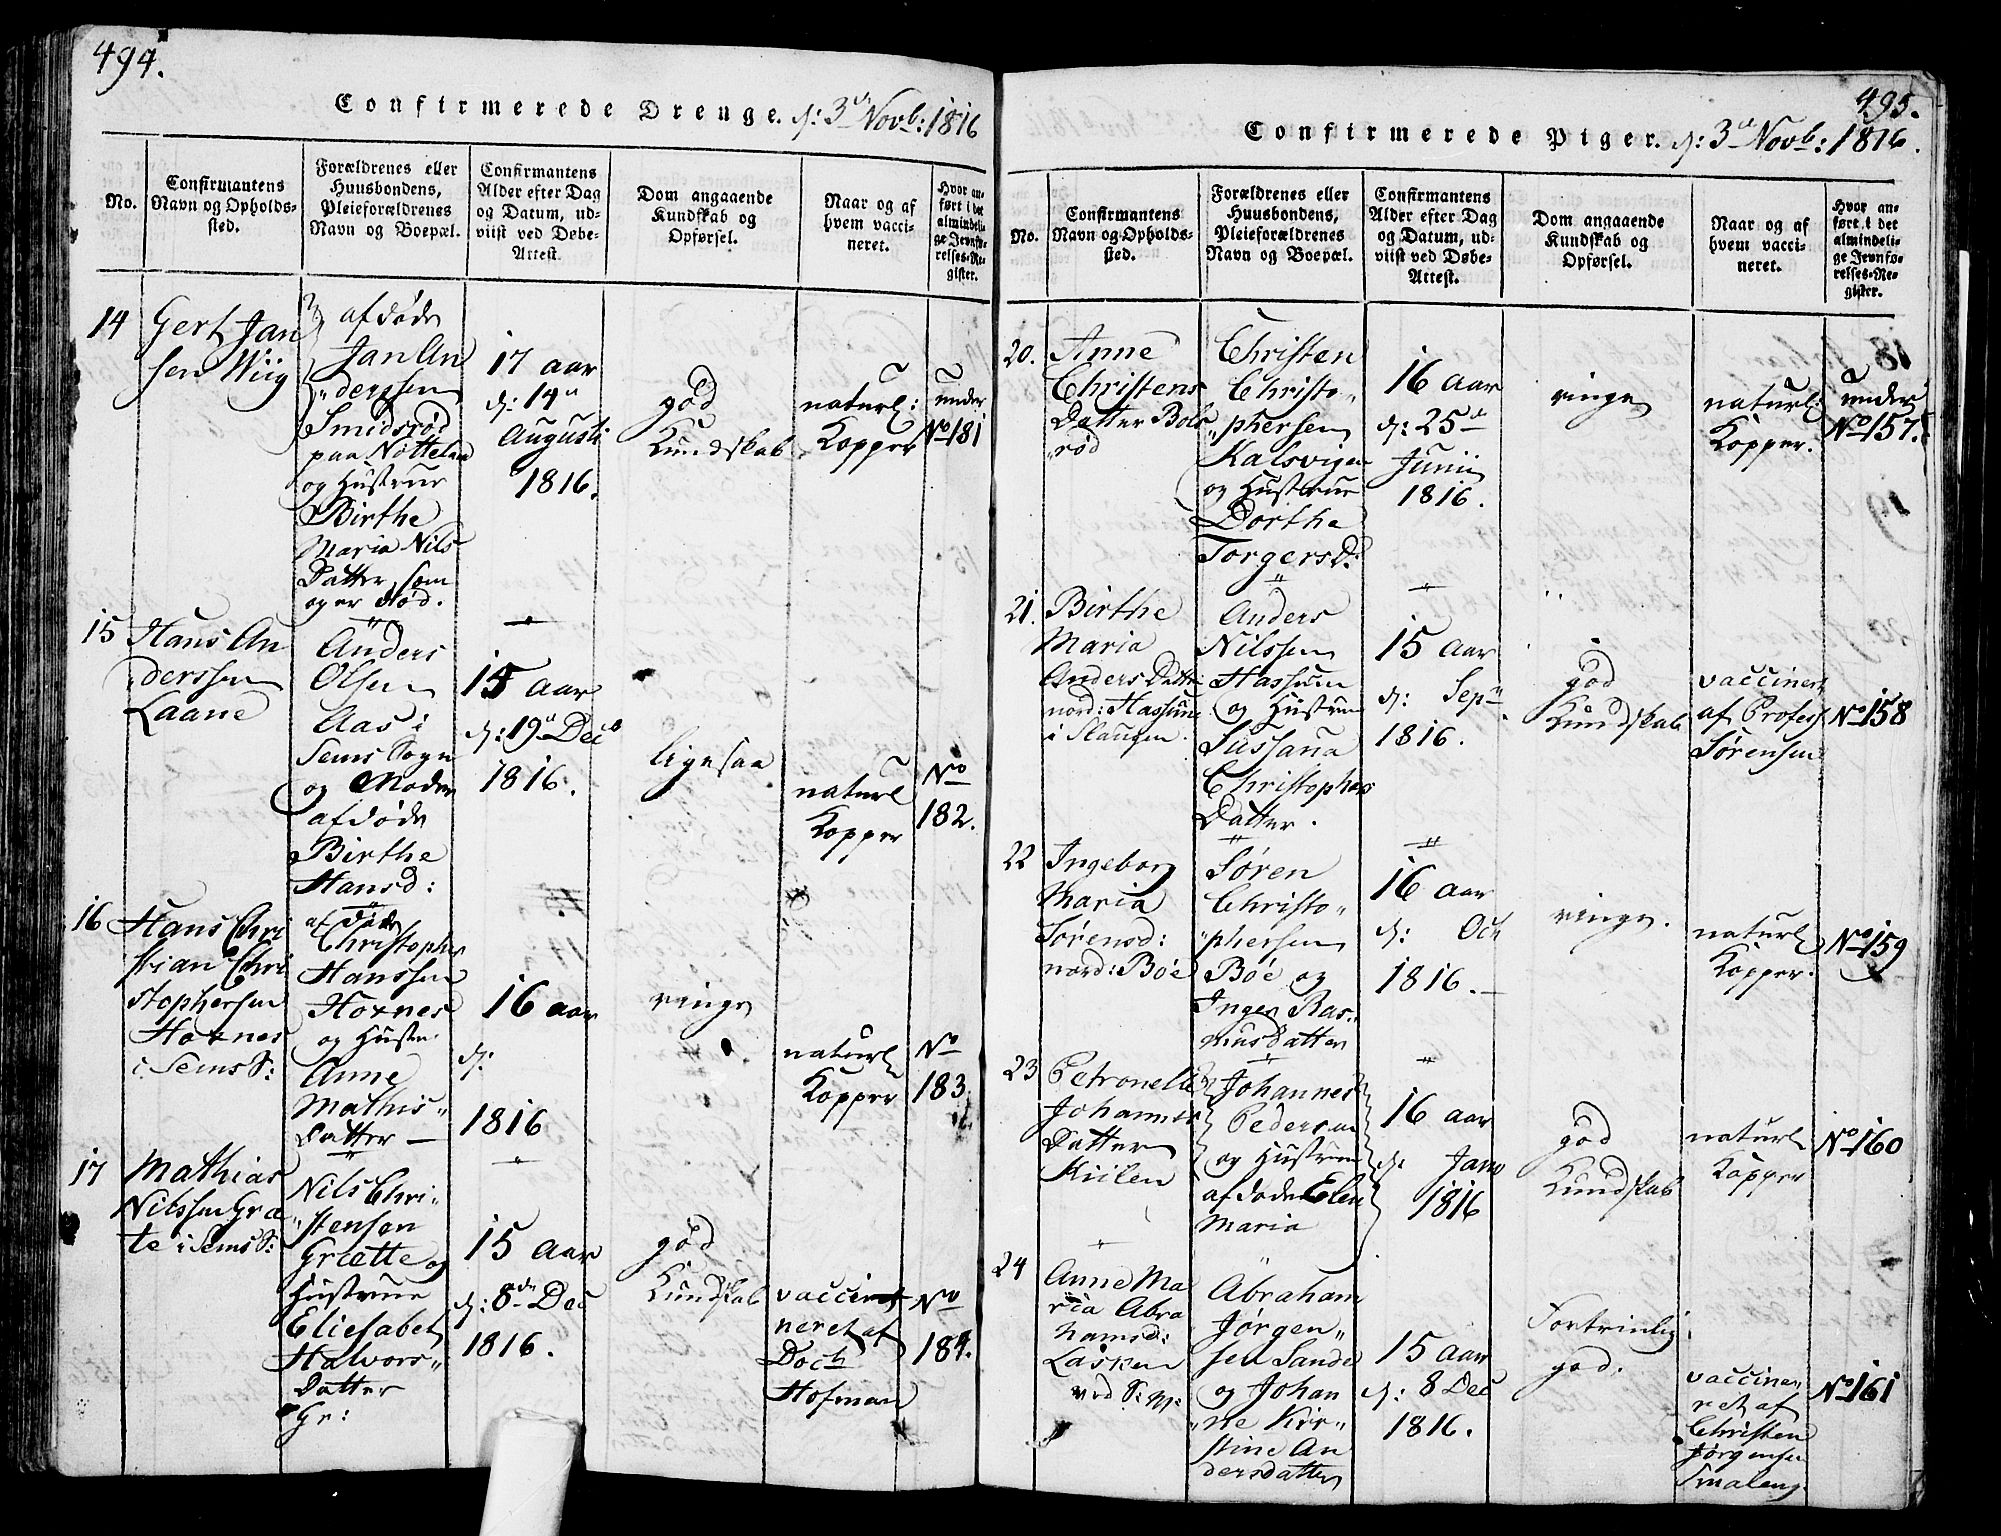 494.
Confirmerede Drenge. d: 3 Novb: 1816
No.
Confirmantens
Navn og Opholds-
sted.
Forældrenes eller
Huusbondens,
Pleieforældrenes
Navn og Boepæl.
Confirmantens
Alder efter Dag
og Datum, ud-
viist ved Døbe-
Attest.
Dom angaaende
Kundskab og
Opførsel.
Naar og af
hvem vacci-
neret.
Hvor an-
ført i det
almindeli-
ge Jevnfø-
relses-Re-
gister.
14
Gert Jan
sen Wiig
afdøde
Jan An
derssen
Smidsrød
paa Nøtteland
og Hustrue
Birthe
Maria Nils
Datter, som
og er død.
17 aar
d: 14
Augusti
1816.
god
Kundskab
naturl:
Kopper
under
No 181
15
Hans An
derssen
Laane
Anders
Olsen
Aas i
Sems Sogn
og Moder
afdøde
Birthe
Hansd:
15 aar
d: 19 Decb
1816.
ligesaa
naturl
Kopper
No
182.
16
Hans Chri
stian Chri
stophersen
Hoxnes
i Sems S:
afdøde
Christopher
Hanssen
Hoxnes
og Hustr:
Anne
Mathis
Datter —
16 aar
d:
1816
ringe
naturl
Kopper
No
183
17
Mathias
Nilssen Græ
te i Sems S:
Nils Chri
stensen
Grætte og
Hustrue
Eliesabet
Halvors
Datter
Gr:
15 aar
d: 8de Dec
1816.
god
Kundskab
vacci
neret af
Doct
Hofman
No
184.
495.
Confirmerede Piger. d: 3 Novb: 1816.
No.
Confirmantens
Navn og Opholds-
sted.
Forældrenes eller
Huusbondens,
Pleieforældrenes
Navn og Boepæl.
Confirmantens
Alder efter Dag
og Datum, ud-
viist ved Døbe-
Attest.
Dom angaaende
Kundskab og
Opførsel.
Naar og af
hvem vacci-
neret.
Hvor an-
ført i det
almindeli-
ge Jevnfø-
relses-Re-
gister.
20.
Anne
Christens
Datter Bols
rød
Christen
Christo
phersen
Kalsvigen
og Hustrue
Dorthe
TorgersD:
16 aar
d: 25
Junii
1816.
ringe
naturl:
Kopper.
under
No 157.
21.
Birthe
Maria
Anders Datter
nord: Hassum
i Slaugen.
Anders
Nilssen
Hassum
og Hustrue
Sussana
Christophers
Datter.
15 aar
d: Sep
1816.
god
Kundskab
vaccineret
af Profess
Sørensen
No 158
22
Ingeborg
Maria
Sørensd:
nord: Bøe
Søren
Christo
phersen
Bøe og
Inger Ras
musdatter
16 aar
d: Oct
1816. —
ringe.
naturl
Kopper.
No 159
23
Petronelle
Johannes
Datter
Kiilen
Johannes
Pedersen
og Hustrue
afdøde Elen
Maria
16 aar
d. Janv
1816
god
Kundskab
naturl
Kopper
No 160
24
Anne Ma
ria Abra
hamsd:
Lasken
ved
Abraham
Jørgen
sen Sande
og Johan
ne Kir
stine An
dersdatter
15 aar
d: 8 Dec
1816.
Fortrinlig
god.
vaccine
ret af
Christen
Jørgensen
Smaleng
No 161